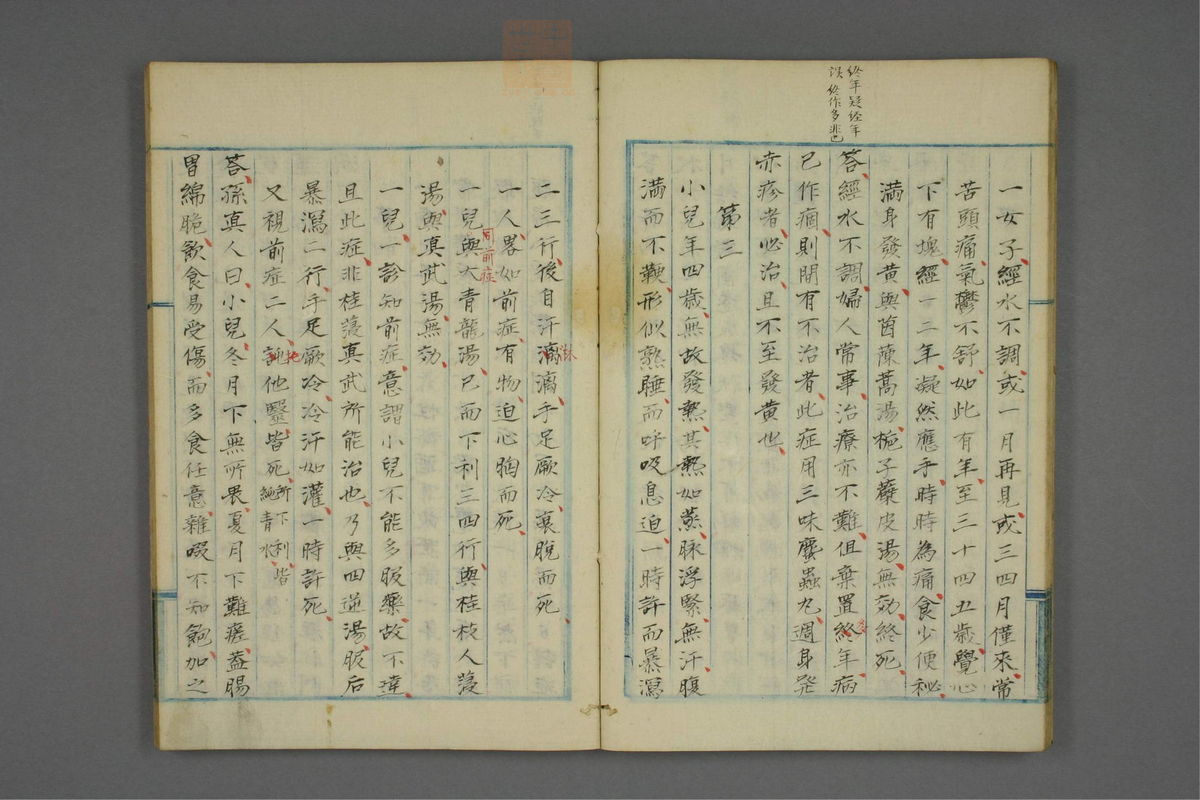 終年疑経年
誤 終作多非也
一女子經水不調或一月再見或三四月僅來常
苦頭痛氣鬱不舒如此有年至三十四五歳覺心
下有塊經一二年凝然應手時時為痛食少便秘
満身發黄與茵蔯蒿湯梔子蘗皮湯無効終死
答經水不調婦人常事治療亦不難但棄置終年病
已作痼則間有不治者此症用三味䗪蟲丸週身発
赤疹者必治且不至發黄也
第三
小兒年四歳無故發熱其熱如蒸脉浮緊無汗腹
満而不鞕形似熟睡而呼吸息迫一時許而暴瀉
二三行後自汗滴漓手足厥冷衰脱而死
淋
一人畧如前症有物迫心胸而死
同前症
一兒與大青龍湯已而下利三四行與桂枝人葠
湯與真武湯無効
一兒一診知前症意謂小兒不能多服藥故不瑋
且此症非桂葠真武所能治也乃與四逆湯服后
暴瀉二行手足厥冷冷汗如灌一時許死
又視前症二人託他醫皆死所下利皆純青水
答孫真人曰小兒冬月下無所畏夏月下難瘥蓋腸
胃綿脆飲食易受傷而多食任意雜啜不知飽加之